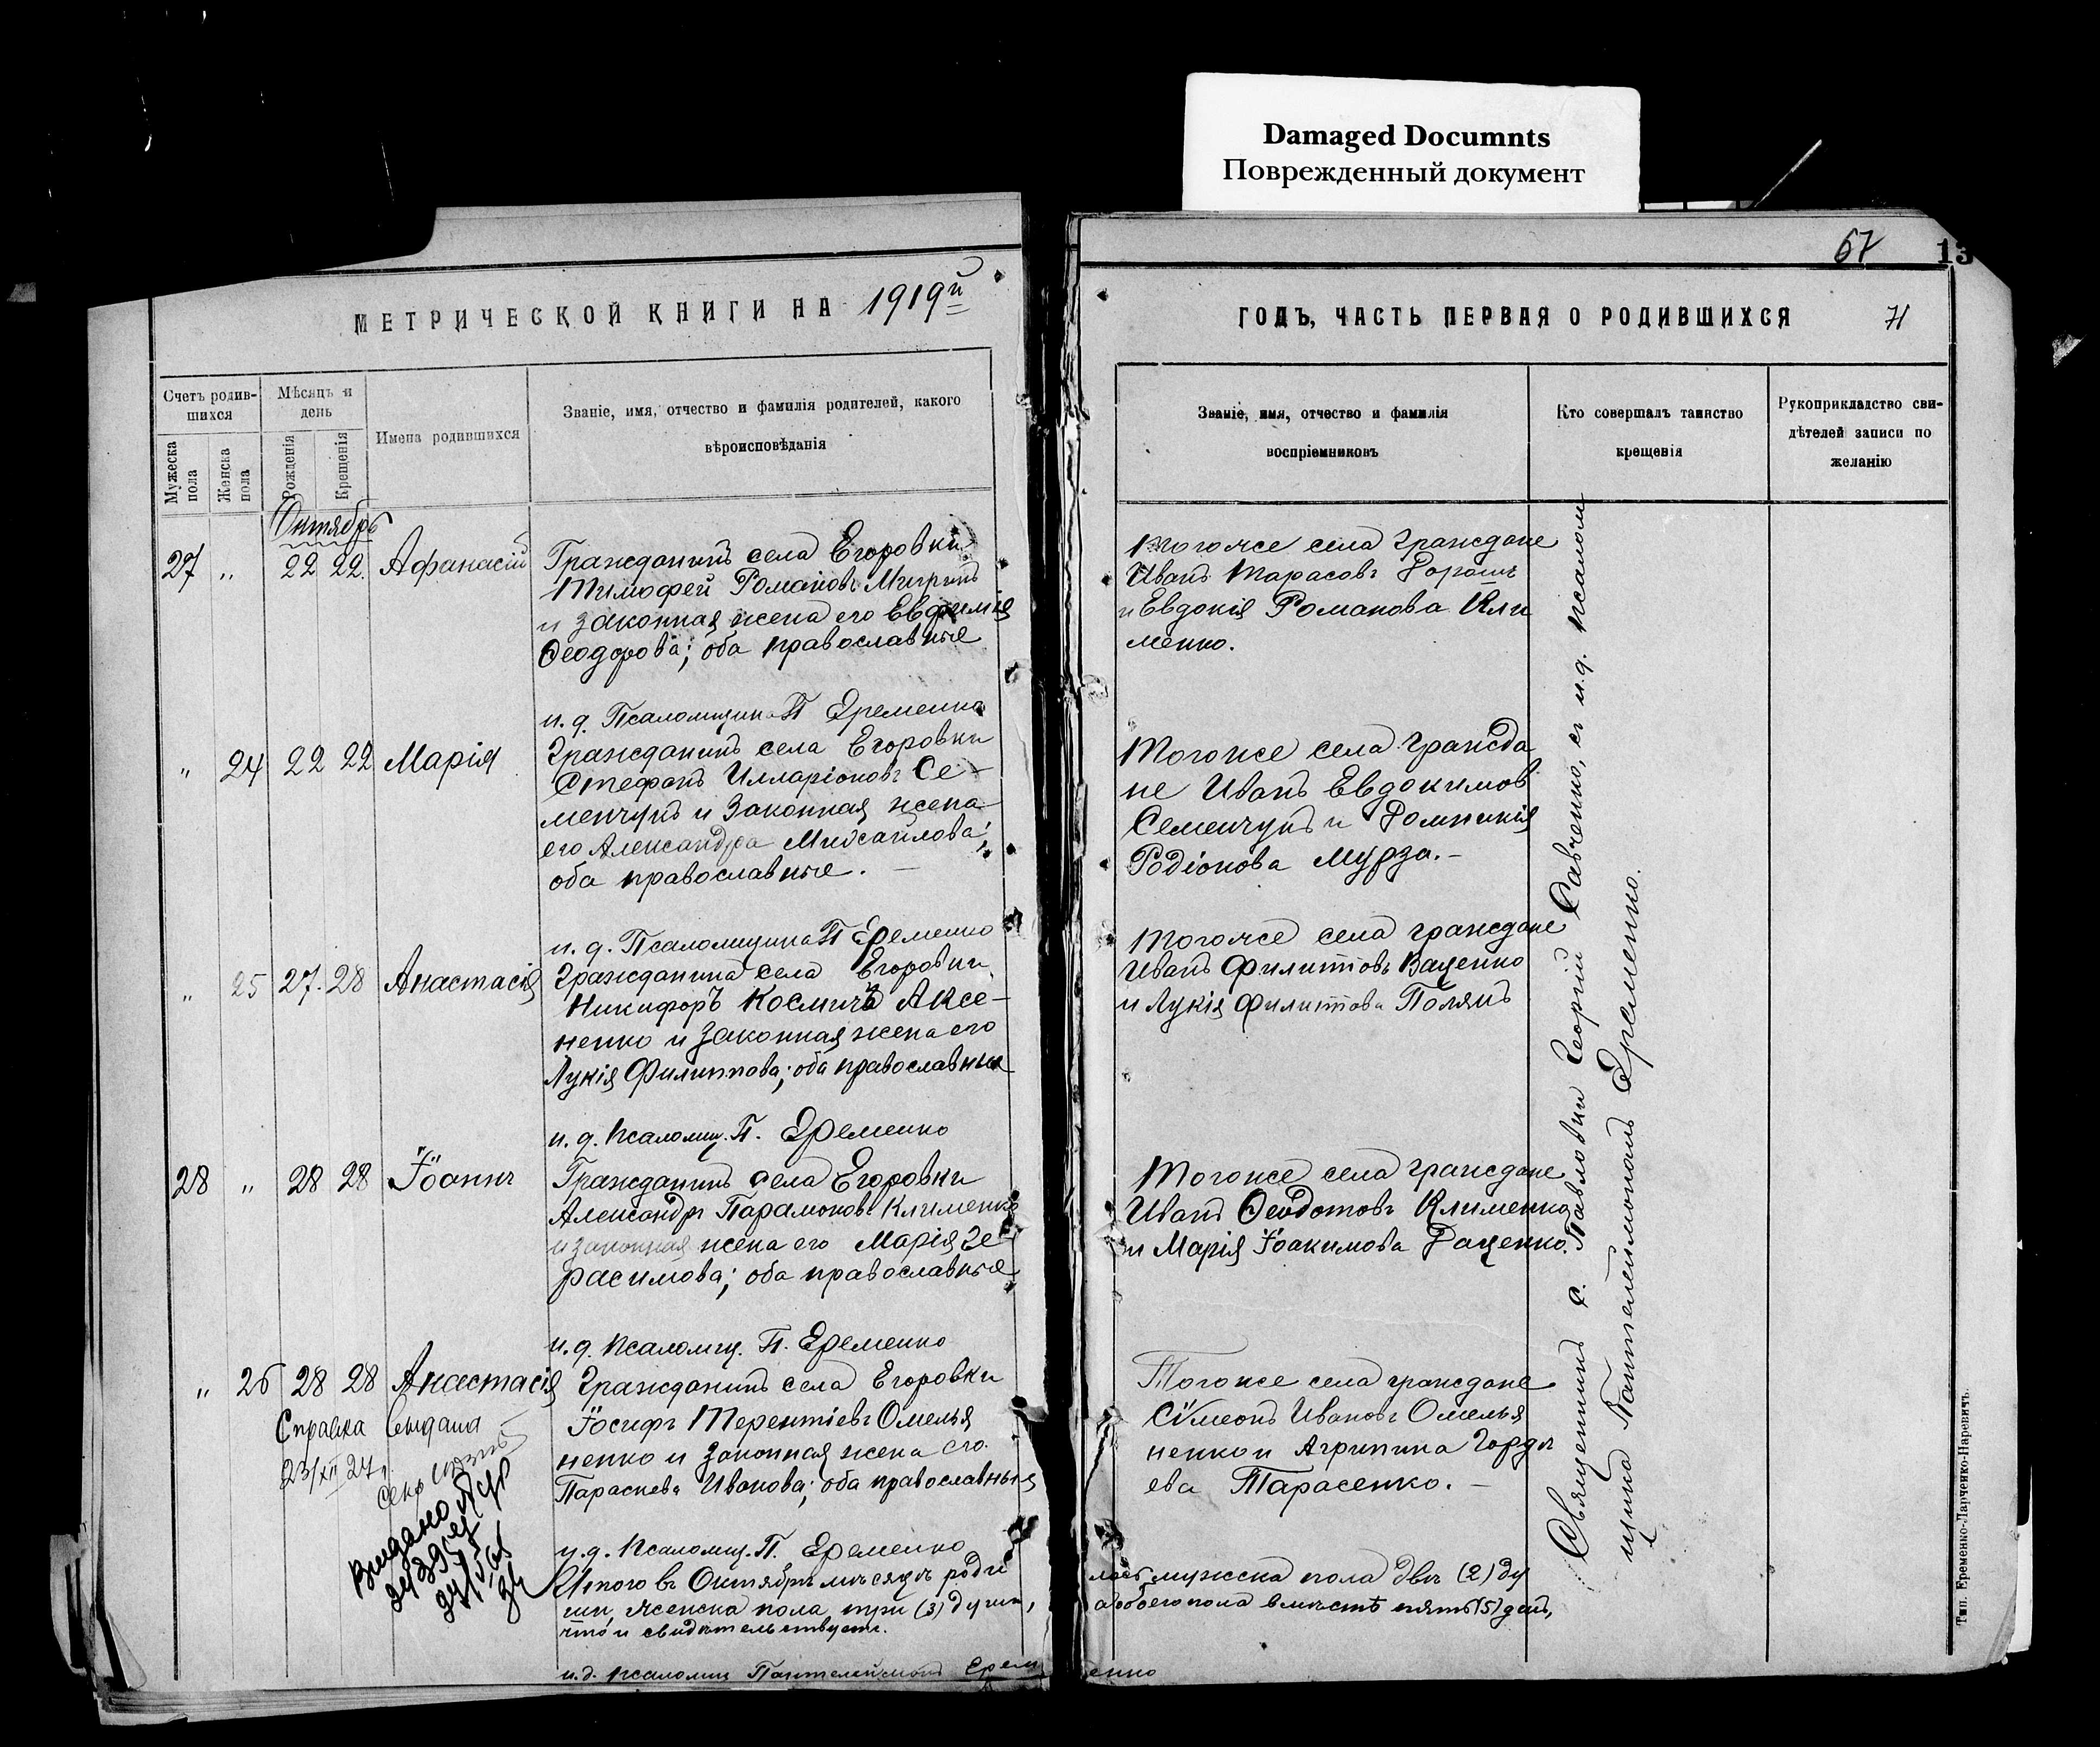 Damaged Documnts
Поврежденный документ
67
13
МЕТРИЧЕСКОЙ КНИГИ НА 1919й
ГОДЪ, ЧАСТЬ ПЕРВАЯ О РОДИВШИХСЯ
71
Счетъ родив-
шихся
Мужеска
пола
Женска
пола
Мѣсяцъ и
день
Рожденія
Крещенія
Имена родившихся
Званіе, имя, отчество и фамилія родителей, какого
вѣроисповѣданія
Званіе, имя, отчество и фамилія
воспріемниковъ
Кто совершалъ таинство
крещенія
Рукоприкладство сви-
дѣтелей записи по
желанію
Октябрь
27 " 22 22. Афанасій
Гражданинъ села Егоровки
Тимофей Романовъ
и законная жена его Евфимія
Ѳеодорова; оба православные
Тогоже села граждане
Иванъ Тарасовъ Дорошъ
и Евдокія Романова Кли
менко.
и. д. Псаломщика П Еременко
" 24 22 22 Марія
Гражданинъ села Егоровки
Стефанъ Илларіоновъ Се-
менчукъ и законная жена
его Александра Михайлова;
оба православные. —
Тогоже села гражда
не Иванъ Евдокимов
Семенчукъ и Домникія
Родіонова Мурза. —
и. д. Псаломщика П Еременко
" 25 27. 28 Анастасія
Гражданина села Егоровки
Никифоръ Космичъ Аксе-
ненко и законная жена его
Лукія Филиппова; оба православные
Тогоже села граждане
Иванъ Филипповъ Ваценко
и Лукія Филиппова Полякъ
и. д. псаломщ. П. Еременко
28 " 28 28 Іоаннъ
Гражданинъ села Егоровки
Александръ Парамоновъ Клименко
и законная жена его Марія Ге
расимова; оба православные
Тогоже села граждане
Иванъ Ѳеодотовъ Клименко
и Марія Іоакимова Даценко.
и. д. псаломщ. П. Еременко
" 26 28 28 Анастасія
Гражданинъ села Егоровки
Іосифъ Терентіевъ Омелья
ненко и законная жена его
Параскева Иванова; оба православныя
Тогоже села граждане
Сѵмеонъ Ивановъ Омелья
ненко и Агрипина Горде
ева Тарасенко. —
Справка выдана
23/XII 27
Видано
и. д. псаломщ. П. Еременко
Итого въ Октябрѣ мѣсяцѣ роди
лось мужска пола двѣ (2) ду
ши, женска пола три (3) души,
а обоего пола вмѣстѣ пять (5) душъ,
что и свидѣтельствуетъ.
и. д. псаломщ Пантелеимонъ Еременко
Священникъ с. Павловки Георгій Савченко, съ и. д. псалом
щика Пантелеимономъ Еременко.
Тип. Еременко-Ларченко-Наревичъ.